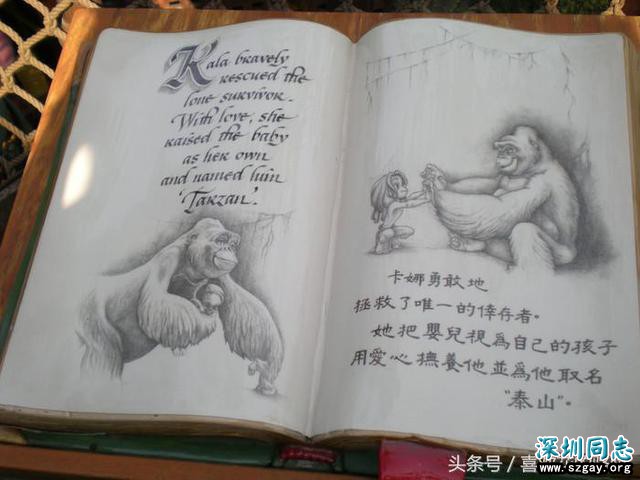 Kala bravely
rescued the
lone survivor.
With love, she
raised the baby
as her own
and named him
'Tarzan'.
卡娜勇敢地
拯救了唯一的倖存者。
她把嬰兒視爲自己的孩子
用愛心撫養他並爲他取名
"泰山"。
深圳同志
www.szgay.org
头条号/喜